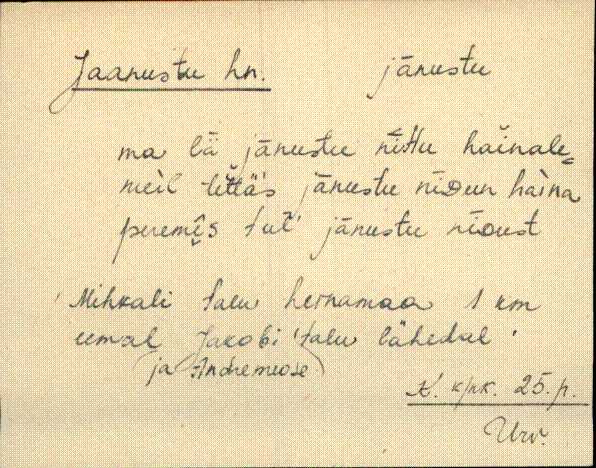 Jaanustu hn. jānustu
ma lä jānustu nīttu haìnale
meìl tèttäs jānustu nīdun haìna
peremîs tuĺ jānustu nīdust
Mihkali talu heinamaa 1 km
eemal Jakobi talu lähedal.
(ja Andremeose)
K. khk. 25.p.
Urv.